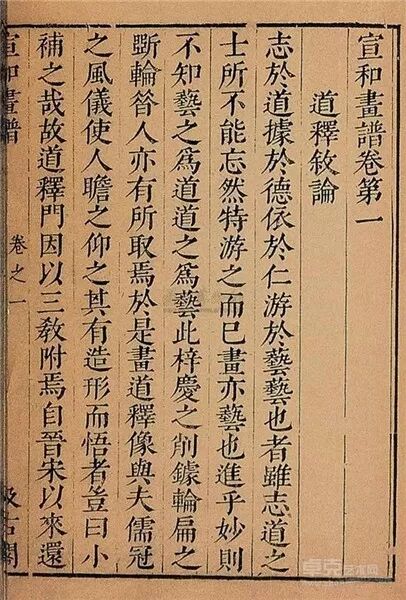 宣和畫譜卷第一
道釋敘論
志於道據於德依於仁游於藝藝也者雖志道之
士所不能忘然特游之而已畫亦藝也進乎妙則
不知藝之為道道之為藝此梓慶之削鐻輪扁之
斲輪昔人亦有所取焉於是畫道釋像與夫儒冠
之風儀使人瞻之仰之其有造形而悟者豈曰小
補之哉故道釋門因以三教附焉自晉宋以來還
宣和畫譜
卷之一
汲古閣
卓克艺术网